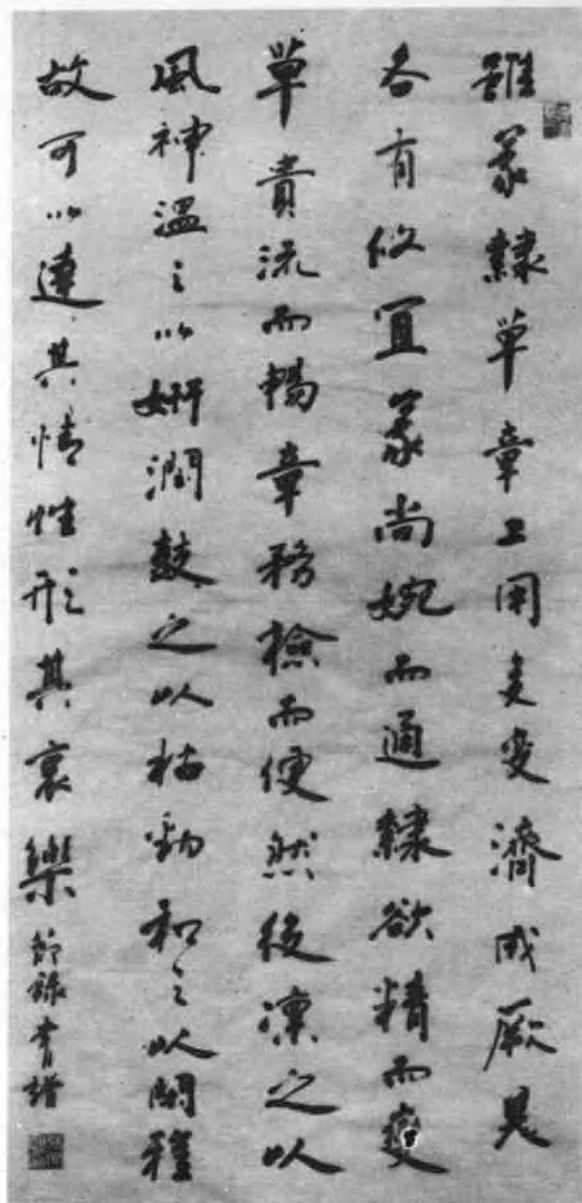 雖篆隸草章工用多變濟成厥美
各有攸宜篆尚婉而通隸欲精而
草貴流而暢章務檢而便然後凜之以
風神溫之以妍潤鼓之以枯勁和之以閑雅
故可以達其情性形其哀樂 節錄書譜